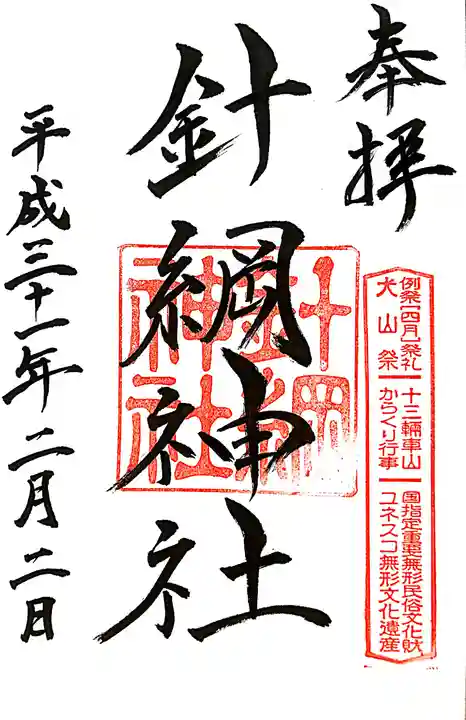 奉拝
例祭「四月」祭礼
犬山祭
十三輛車山
からくり行事
国指定重要無形民俗文化財
ユネスコ無形文化遺産
針綱神社
針綱神社
平成三十一年二月二日